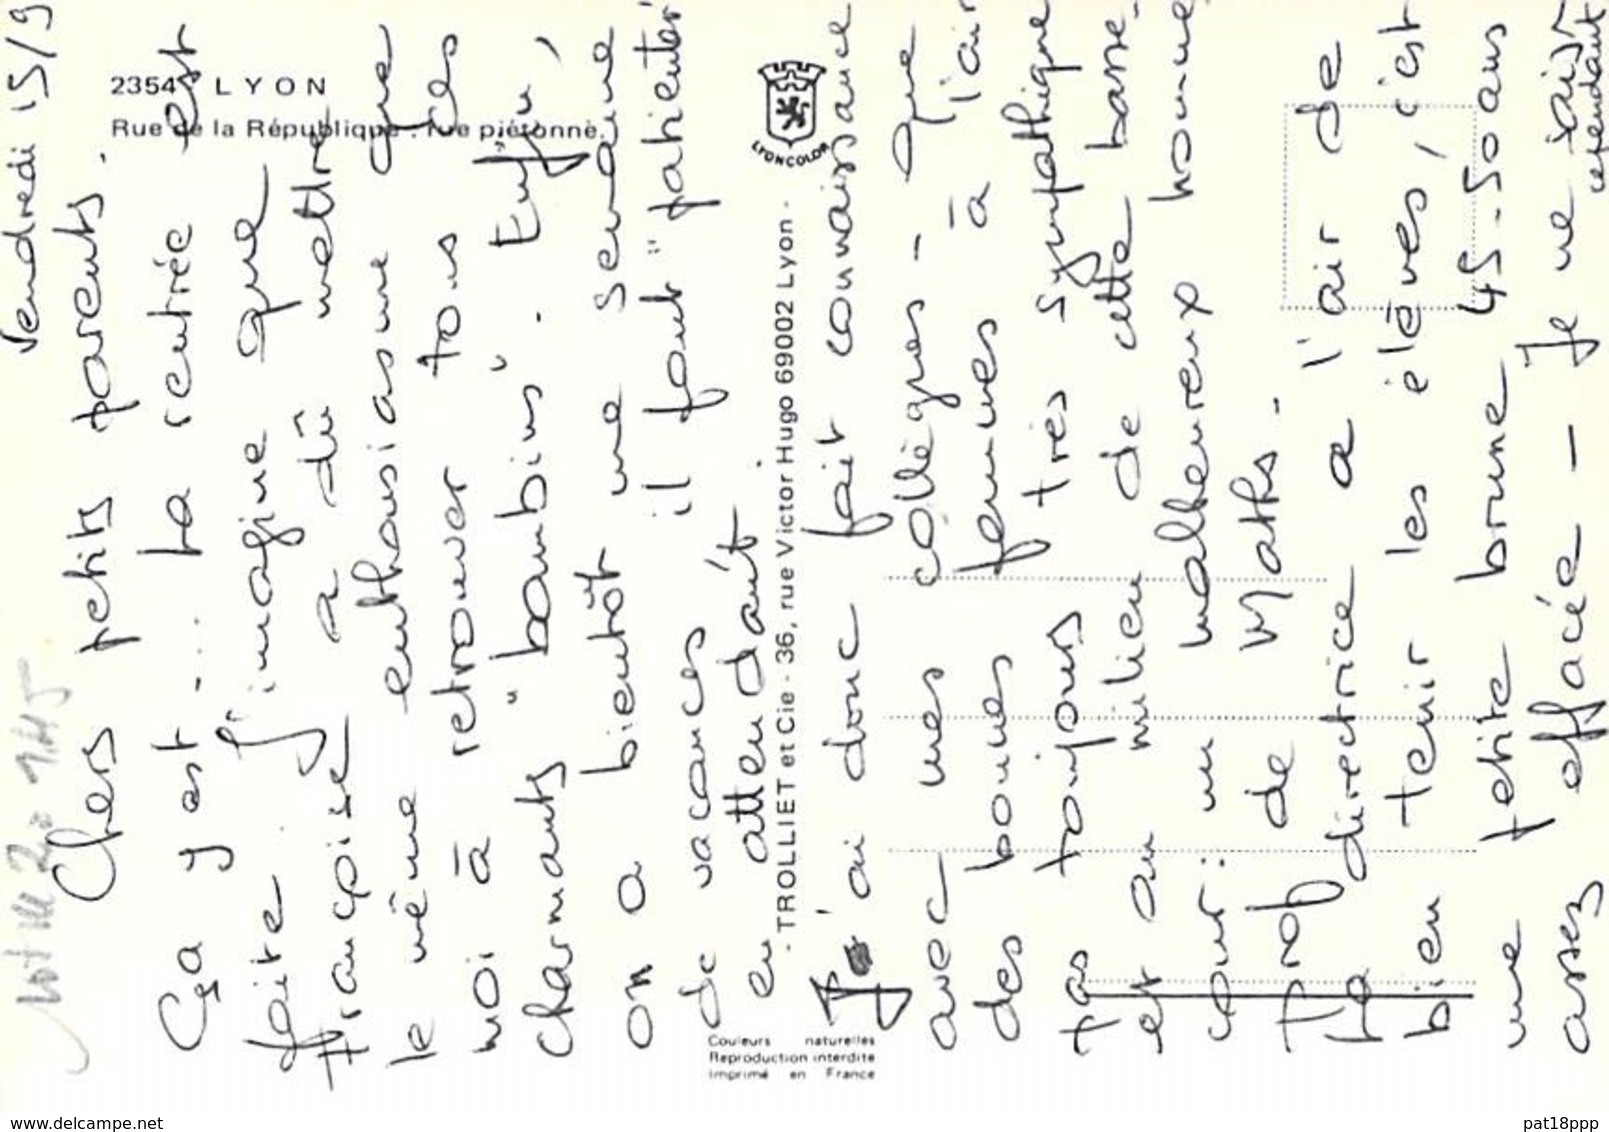 Vendredi 15/9
Chers petits parents.
Ça y est... La rentrée est
faite. J'imagine que
Françoise a dû mettre
le même enthousiasme que
moi à retrouver tous ces
charmants "bambins". Enfin,
on a bientôt une semaine
de vacances il faut "patienter"
en attendant.
J'ai donc fait connaissance
avec mes collègues - que
des bonnes femmes à l'air
pas toujours très sympathique
et au milieu de cette basse-
cour: un malheureux homme,
Prof de Maths -
La directrice a l'air de
bien tenir les élèves, c'est
une petite brune 45-50 ans
assez effacée - Je ne sais
cependant
2354 LYON
Rue de la République : rue piétonne.
LYONCOLOR
- TROLLIET et Cie - 36, rue Victor Hugo 69002 Lyon -
Couleurs naturelles
Reproduction interdite
Imprimé en France
www.delcampe.net
pat18ppp